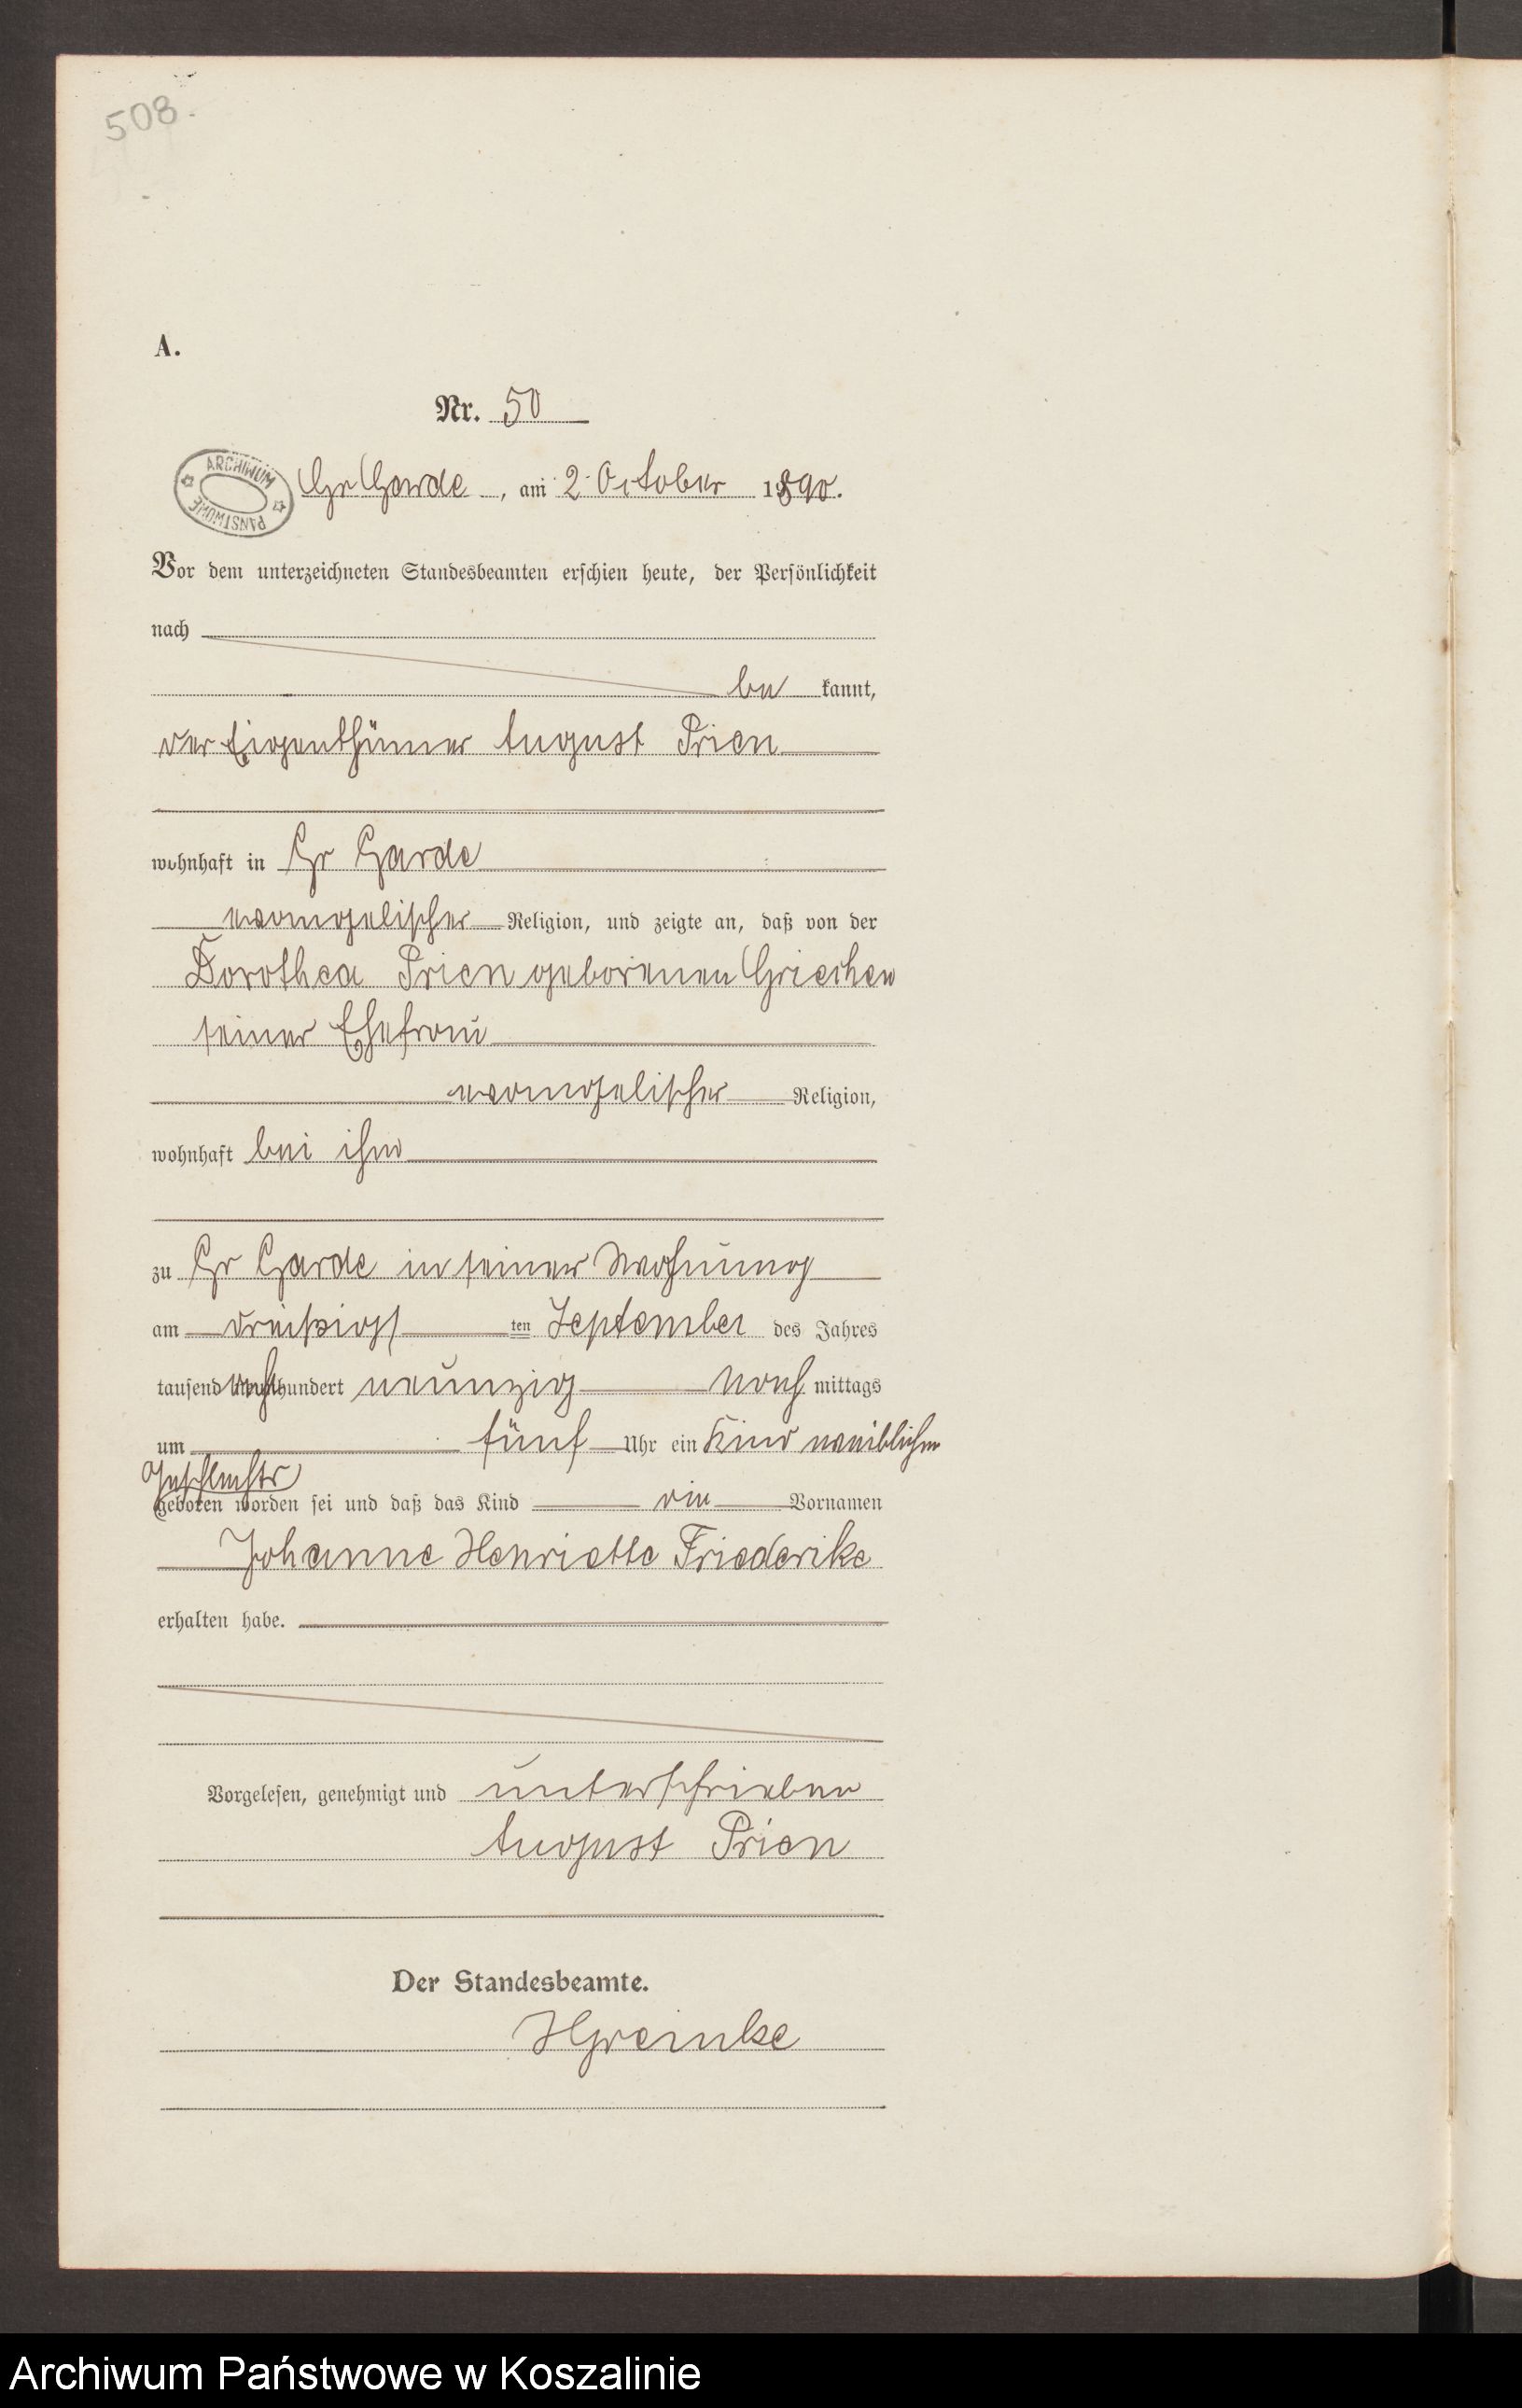 508.
A.
Nr. 50
ARCHIWUM PAŃSTWOWE
Gr Garde, am 2. October 1890.
Vor dem unterzeichneten Standesbeamten erschien heute, der Persönlichkeit
nach
be kannt,
der Eigenthümer August Prien
wohnhaft in Gr Garde
evangelischer Religion, und zeigte an, daß von der
Dorothea Prien geborenen
seiner Ehefrau
evangelischer Religion,
wohnhaft bei ihm
zu Gr Garde in seiner Wohnung
am dreißigst ten September des Jahres
tausend acht hundert neunzig Nach mittags
um fünf Uhr ein Kind weiblichen
Geschlechts
geboren worden sei und daß das Kind die Vornamen
Johanne Henriette Friederike
erhalten habe.
Vorgelesen, genehmigt und unterschrieben
August Prien
Der Standesbeamte.
Archiwum Państwowe w Koszalinie